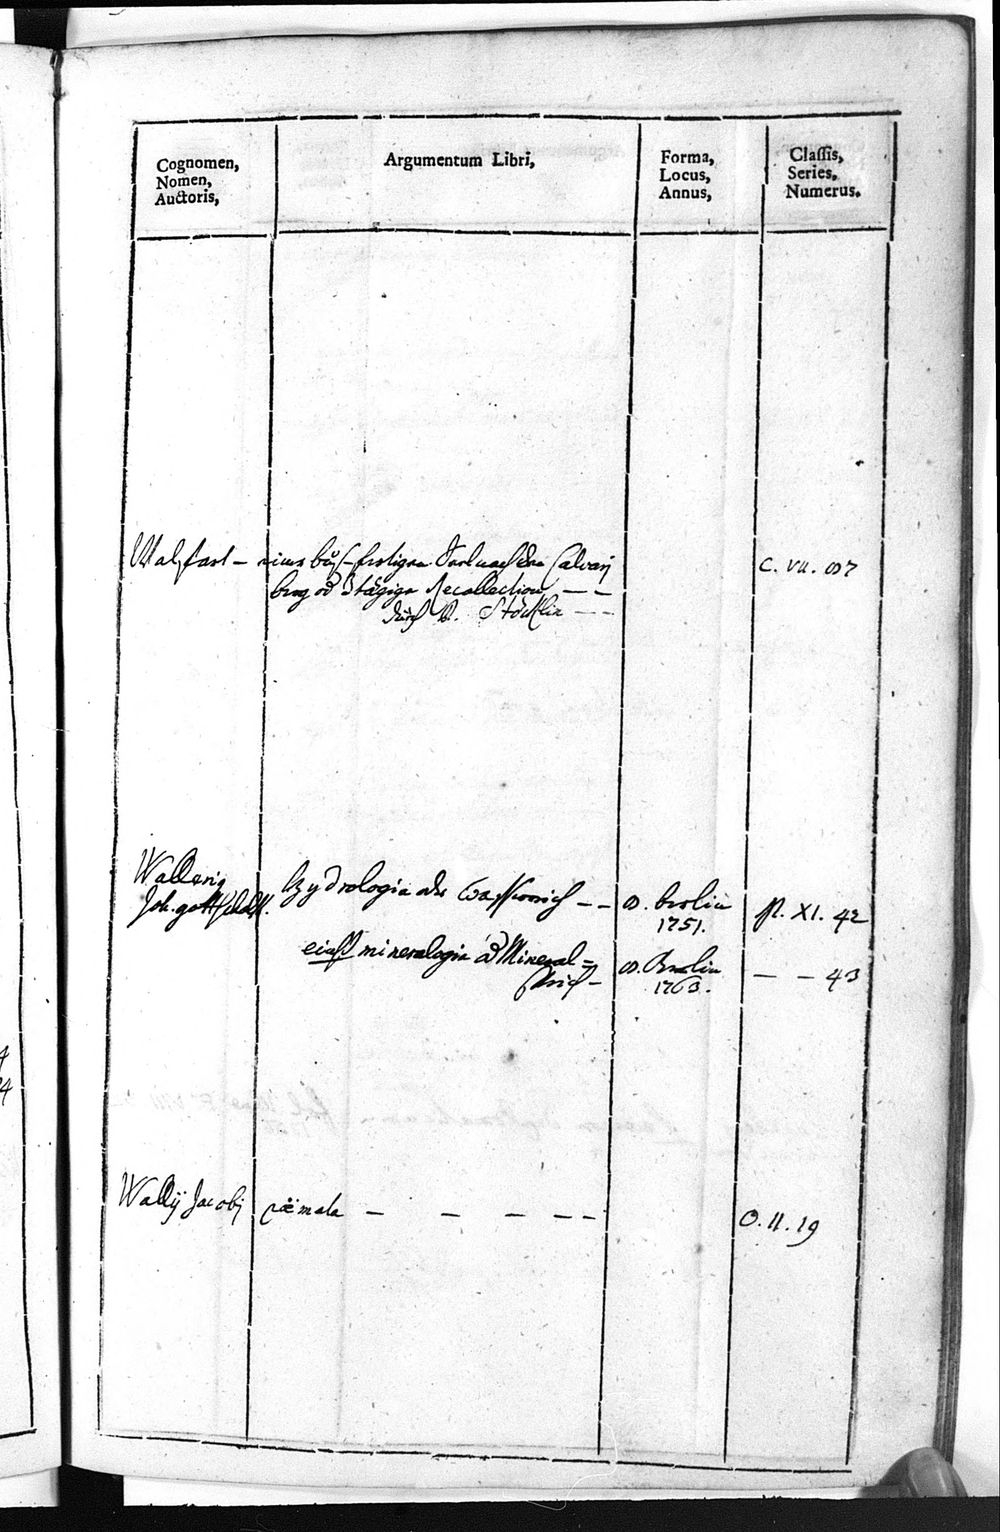 Cognomen,
Nomen,
Auctoris,
Argumentum Libri,
Forma,
Locus,
Annus,
Classis,
Series,
Numerus.
Walfart – einer buß-fertigen Seel nach dem Calvari
berg od 3tägige Recollection – –
durch P. Stöcklin – –
C. VII. 007
Wallerij
Joh. gottschalk.
hydrologia oder Wasserreich – –
8. berlin
1751.
XI. 42
eiusd mineralogia od Mineral=
Reich –
8. Berlin
1763.
– – 43
Wallij Jacobj
poëmata – – – – –
O. II. 19